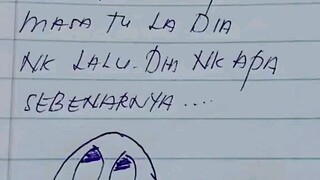 MASA TU LA DIA
NK LALU. DIA NK APA
SEBENARNYA ....